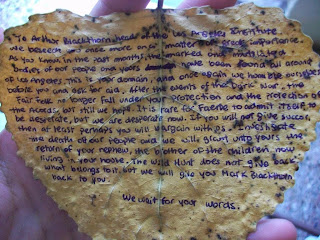 To Arthur Blackthorn, head of the Los Angeles Institute,
We beseech you once more on a matter of grave importance.
As you know, in the past months, the marked and mutilated
bodies of our people and yours have been found all around
Los Angeles. This is your domain, and once again we humble ourselves
before you and ask for aid. After the events of the Dark War, the
Fair Folk no longer fall under your protection and the perfection of
the Accords, but still we hope. It is rare for Faerie to admit itself to
be desperate, but we are desperate now. If you will not give succor,
then at least perhaps you will bargain with us. Investigate
the death of our people and we will grant unto yours the
return of your nephew, the brother of the children now
living in your house. The Wild Hunt does not give back
what belongs to it, but we will give you Mark Blackthorn
back to you.
We wait for your words.